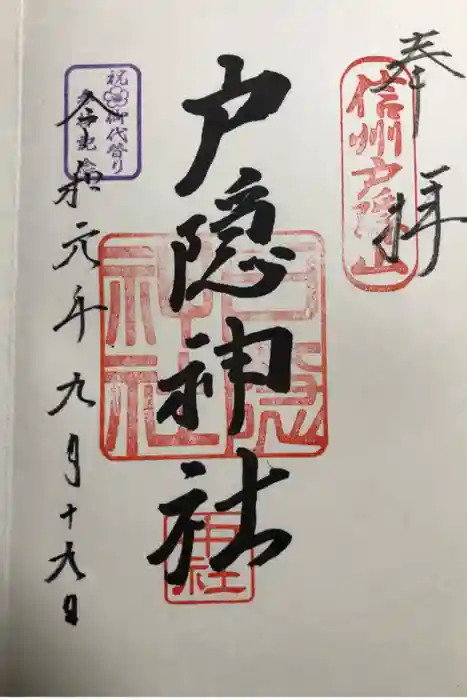 奉拝
信州戸隠山
戸隠神社
戸隠
神社
中社
祝御代替り
令和元年九月十九日